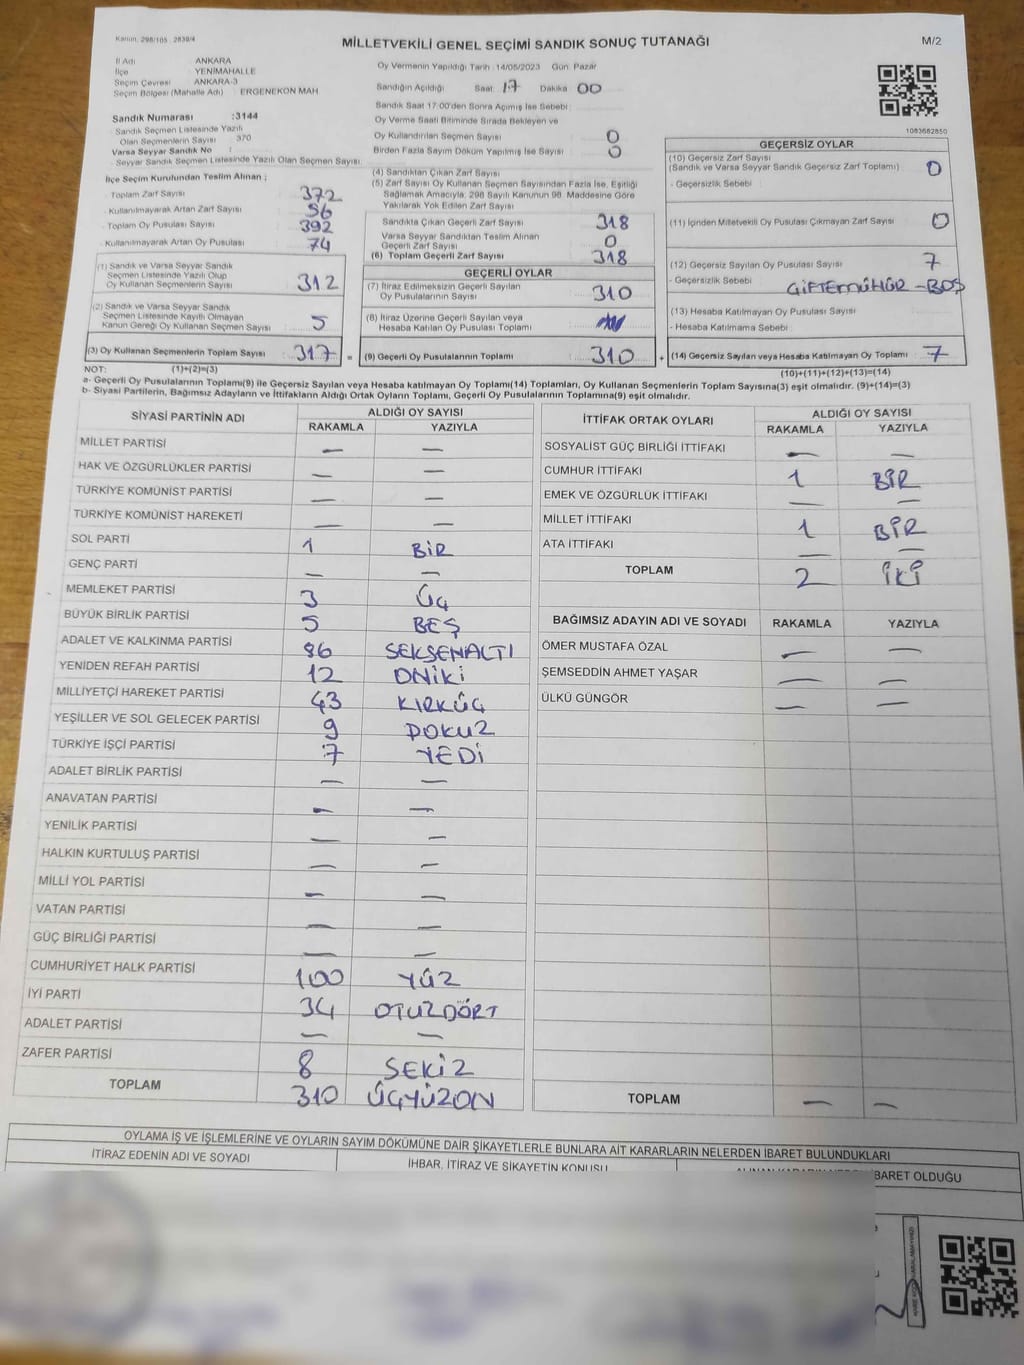 Kanun: 298/105 2839/4
MİLLETVEKİLİ GENEL SEÇİMİ SANDIK SONUÇ TUTANAĞI
M/2
İl Adı ANKARA
İlçe YENİMAHALLE
Seçim Çevresi ANKARA-3
Seçim Bölgesi (Mahalle Adı) : ERGENEKON MAH
Oy Vermenin Yapıldığı Tarih : 14/05/2023 Gün: Pazar
Sandığın Açıldığı Saat 17 Dakika 00
Sandık Saat 17:00'den Sonra Açımış İse Sebebi
Oy Verme Saati Bitiminde Sırada Bekleyen ve
Oy Kullandırılan Seçmen Sayısı 0
Birden Fazla Sayım Döküm Yapılmış İse Sayısı 0
Sandık Numarası :3144
Sandık Seçmen Listesinde Yazılı
Olan Seçmenlerin Sayısı : 370
Varsa Seyyar Sandık No :
Seyyar Sandık Seçmen Listesinde Yazılı Olan Seçmen Sayısı:
İlçe Seçim Kurulundan Teslim Alınan ;
Toplam Zarf Sayısı 372
Kullanılmayarak Artan Zarf Sayısı 56
Toplam Oy Pusulası Sayısı 392
Kullanılmayarak Artan Oy Pusulası 74
(1) Sandık ve Varsa Seyyar Sandık
Seçmen Listesinde Yazılı Olup
Oy Kullanan Seçmenlerin Sayısı : 312
(2) Sandık ve Varsa Seyyar Sandık
Seçmen Listesinde Kayıtlı Olmayan
Kanun Gereği Oy Kullanan Seçmen Sayısı : 5
(3) Oy Kullanan Seçmenlerin Toplam Sayısı : 317 =
(4) Sandıktan Çıkan Zarf Sayısı
(5) Zarf Sayısı Oy Kullanan Seçmen Sayısından Fazla İse, Eşitliği
Sağlamak Amacıyla, 298 Sayılı Kanunun 98. Maddesine Göre
Yakılarak Yok Edilen Zarf Sayısı
Sandıkta Çıkan Geçerli Zarf Sayısı 318
Varsa Seyyar Sandıktan Teslim Alınan
Geçerli Zarf Sayısı 0
(6) Toplam Geçerli Zarf Sayısı 318
GEÇERLİ OYLAR
(7) İtiraz Edilmeksizin Geçerli Sayılan
Oy Pusulalarının Sayısı : 310
(8) İtiraz Üzerine Geçerli Sayılan veya
Hesaba Katılan Oy Pusulası Toplamı
(9) Geçerli Oy Pusulalarının Toplamı : 310 +
1083682850
GEÇERSİZ OYLAR
(10) Geçersiz Zarf Sayısı
(Sandık ve Varsa Seyyar Sandık Geçersiz Zarf Toplamı) 0
- Geçersizlik Sebebi :
(11) İçinden Milletvekili Oy Pusulası Çıkmayan Zarf Sayısı 0
(12) Geçersiz Sayılan Oy Pusulası Sayısı : 7
- Geçersizlik Sebebi ÇİFTEMÜHÜR-BOŞ
(13) Hesaba Katılmayan Oy Pusulası Sayısı :
- Hesaba Katılmama Sebebi :
(14) Geçersiz Sayılan veya Hesaba Katılmayan Oy Toplamı : 7
NOT: (1)+(2)=(3) (10)+(11)+(12)+(13)=(14)
a- Geçerli Oy Pusulalarının Toplamı(9) ile Geçersiz Sayılan veya Hesaba katılmayan Oy Toplamı(14) Toplamları, Oy Kullanan Seçmenlerin Toplam Sayısına(3) eşit olmalıdır. (9)+(14)=(3)
b- Siyasi Partilerin, Bağımsız Adayların ve İttifakların Aldığı Ortak Oyların Toplamı, Geçerli Oy Pusulalarının Toplamına(9) eşit olmalıdır.
SİYASİ PARTİNİN ADI ALDIĞI OY SAYISI
RAKAMLA YAZIYLA
MİLLET PARTİSİ — —
HAK VE ÖZGÜRLÜKLER PARTİSİ — —
TÜRKİYE KOMÜNİST PARTİSİ — —
TÜRKİYE KOMÜNİST HAREKETİ — —
SOL PARTİ 1 BİR
GENÇ PARTİ — —
MEMLEKET PARTİSİ 3 ÜÇ
BÜYÜK BİRLİK PARTİSİ 5 BEŞ
ADALET VE KALKINMA PARTİSİ 86 SEKSENALTI
YENİDEN REFAH PARTİSİ 12 ONİKİ
MİLLİYETÇİ HAREKET PARTİSİ 43 KIRKÜÇ
YEŞİLLER VE SOL GELECEK PARTİSİ 9 DOKUZ
TÜRKİYE İŞÇİ PARTİSİ 7 YEDİ
ADALET BİRLİK PARTİSİ — —
ANAVATAN PARTİSİ — —
YENİLİK PARTİSİ — —
HALKIN KURTULUŞ PARTİSİ — —
MİLLİ YOL PARTİSİ — —
VATAN PARTİSİ — —
GÜÇ BİRLİĞİ PARTİSİ — —
CUMHURİYET HALK PARTİSİ 100 YÜZ
İYİ PARTİ 34 OTUZDÖRT
ADALET PARTİSİ — —
ZAFER PARTİSİ 8 SEKİZ
TOPLAM 310 ÜÇYÜZON
İTTİFAK ORTAK OYLARI ALDIĞI OY SAYISI
RAKAMLA YAZIYLA
SOSYALİST GÜÇ BİRLİĞİ İTTİFAKI — —
CUMHUR İTTİFAKI 1 BİR
EMEK VE ÖZGÜRLÜK İTTİFAKI — —
MİLLET İTTİFAKI 1 BİR
ATA İTTİFAKI — —
TOPLAM 2 İKİ
BAĞIMSIZ ADAYIN ADI VE SOYADI RAKAMLA YAZIYLA
ÖMER MUSTAFA ÖZAL — —
ŞEMSEDDİN AHMET YAŞAR — —
ÜLKÜ GÜNGÖR — —
TOPLAM — —
OYLAMA İŞ VE İŞLEMLERİNE VE OYLARIN SAYIM DÖKÜMÜNE DAİR ŞİKAYETLERLE BUNLARA AİT KARARLARIN NELERDEN İBARET BULUNDUKLARI
İTİRAZ EDENİN ADI VE SOYADI
İHBAR, İTİRAZ VE ŞİKAYETİN KONUSU
İBARET OLDUĞU